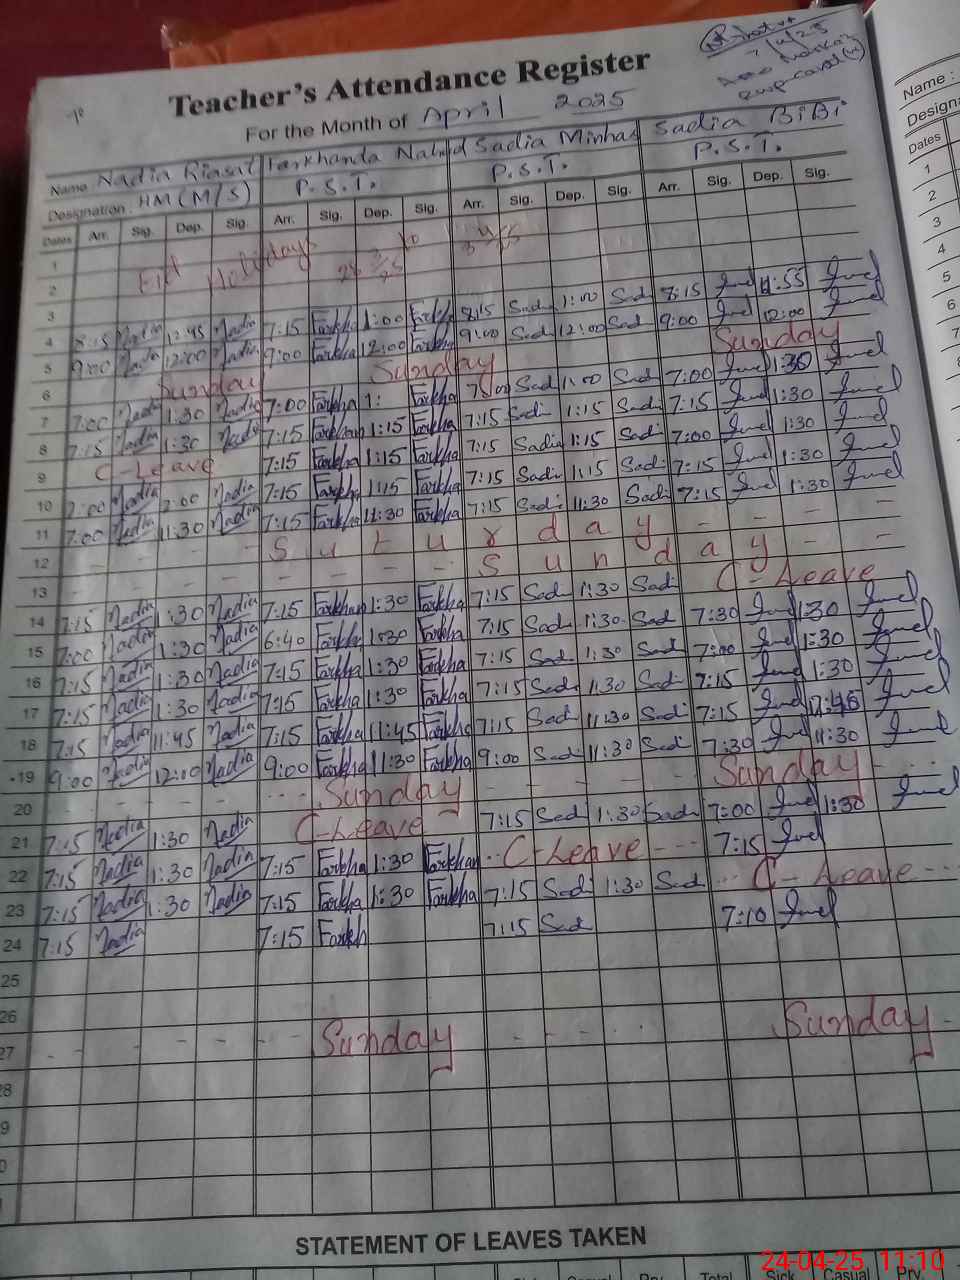 7/4/25
Teacher's Attendance Register
For the Month of April 2025
Name Nadia Riasat Farkhanda Nahid Sadia Minhas Sadia BiBi
Designation HM (M/S) P.S.T. P.S.T. P.S.T.
Dates Arr. Sig. Dep. Sig. Arr. Sig. Dep. Sig. Arr. Sig. Dep. Sig. Arr. Sig. Dep. Sig.
1 Eid Holidays
2
3
4 8:15 Nadia 12:45 Nadia 7:15 Farkha 1:00 Farkha 8:15 Sadi 1:00 Sadi 8:15 11:55
5 9:00 Nadia 12:00 Nadia 9:00 Farkha 12:00 Farkha 9:00 Sadi 12:00 Sadi 9:00 12:00
6 Sunday Sunday Sunday
7 7:00 Nadia 1:30 Nadia 7:00 Farkha 1: Farkha 7:00 Sadi 1:00 Sadi 7:00 1:30
8 7:15 Nadia 1:30 Nadia 7:15 Farkhan 1:15 Farkha 7:15 Sadi 1:15 Sadi 7:15 1:30
9 C-Leave 7:15 Farkha 1:15 Farkha 7:15 Sadia 1:15 Sadi 7:00 1:30
10 7:00 Nadia 2:00 Nadia 7:15 Farkha 1:15 Farkha 7:15 Sadi 1:15 Sadi 7:15 1:30
11 7:00 Nadia 11:30 Nadia 7:15 Farkha 11:30 Farkha 7:15 Sadi 11:30 Sadi 7:15 1:30
12 - - - - S u t u r d a y - - - -
13 - - - - S u n d a y - -
14 7:15 Nadia 1:30 Nadia 7:15 Farkhan 1:30 Farkha 7:15 Sadi 1:30 Sadi C-Leave
15 7:00 Nadia 1:30 Nadia 6:40 Farkha 1:30 Farkha 7:15 Sadi 1:30 Sadi 7:30 1:30
16 7:15 Nadia 1:30 Nadia 7:15 Farkha 1:30 Farkha 7:15 Sadi 1:30 Sadi 7:00 1:30
17 7:15 Nadia 1:30 Nadia 7:15 Farkha 1:30 Farkha 7:15 Sadi 1:30 Sadi 7:15 1:30
18 7:15 Nadia 11:45 Nadia 7:15 Farkha 11:45 Farkha 7:15 Sadi 11:30 Sadi 7:15
19 9:00 Nadia 12:00 Nadia 9:00 Farkha 11:30 Farkha 9:00 Sadi 11:30 Sadi 7:30 11:30
20 Sunday Sunday
21 7:15 Nadia 1:30 Nadia C-Leave 7:15 Sad 1:30 Sadi 7:00 1:30
22 7:15 Nadia 1:30 Nadia 7:15 Farkha 1:30 Farkhan C-Leave 7:15
23 7:15 Nadia 1:30 Nadia 7:15 Farkha 1:30 Farkha 7:15 Sadi 1:30 Sad C-Leave
24 7:15 Nadia 7:15 Farkh 7:15 Sad 7:10
25
26
27 Sunday Sunday
STATEMENT OF LEAVES TAKEN
Total Sick Casual Prv
Name :
Designa
Dates
1
2
3
4
5
6
7
24-04-25 11:10